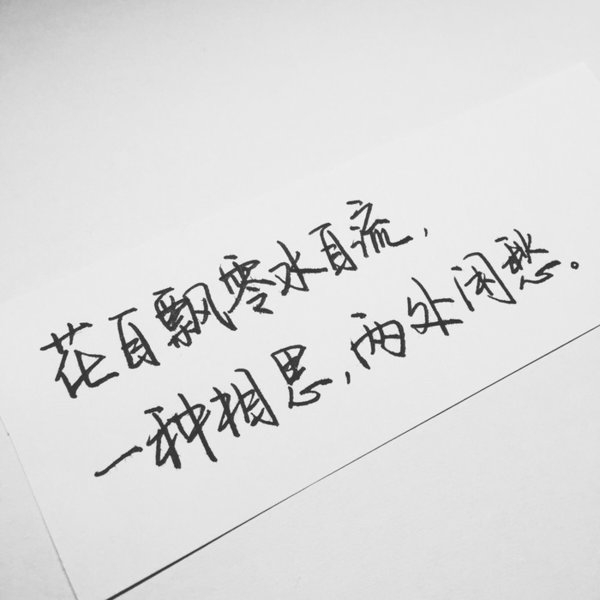 花自飘零水自流,
一种相思,两处闲愁。